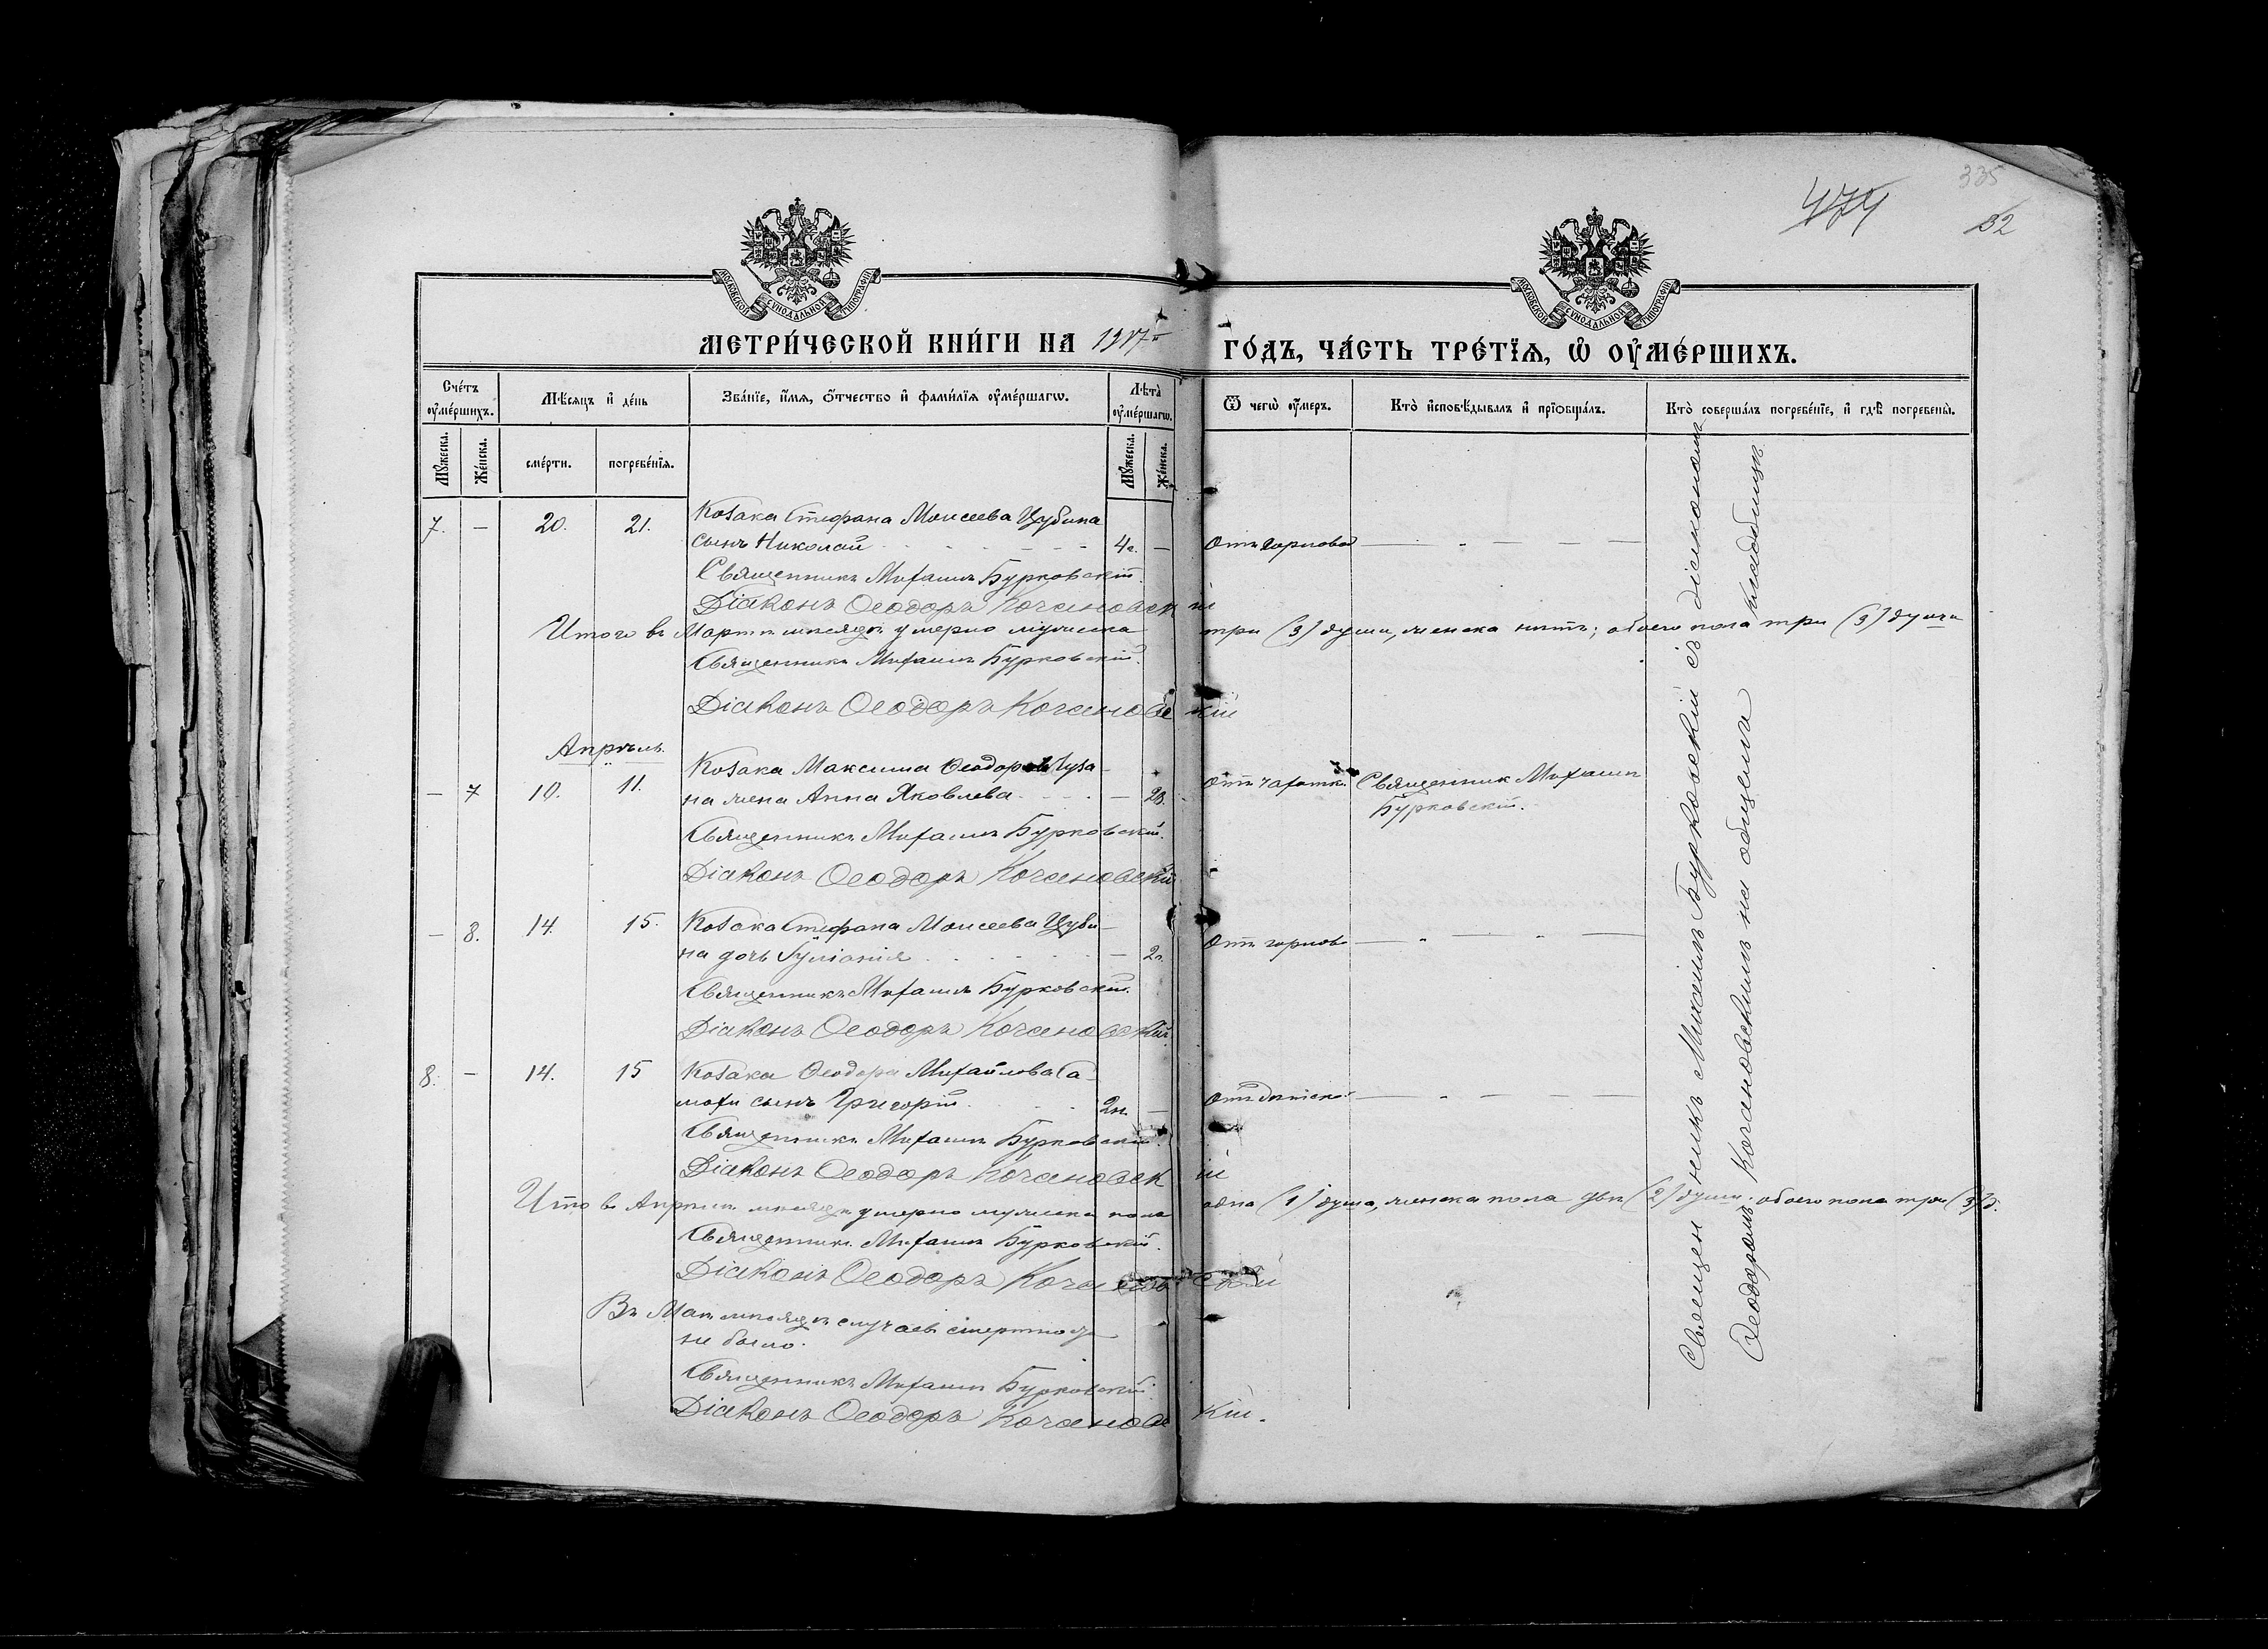 335
474
32
МОСКОВСКОЙ СУНОДАЛЬНОЙ ТИПОГРАФІИ
МОСКОВСКОЙ СУНОДАЛЬНОЙ ТИПОГРАФІИ
МЕТРИ́ЧЕСКОЙ КНИ́ГИ НА 1917й ГО́ДЪ, ЧА́СТЬ ТРЕ́ТЇѦ, Ѡ҆ ОУ҆МЕ́РШИХЪ.
Сче́тъ оу҆ме́ршихъ.
Мꙋ́жеска.
Же́нска.
Мѣ́сѧцъ и҆ де́нь
сме́рти.
погребе́нїѧ.
Зва́нїе, и҆́мѧ, ѻ҆́тчество и҆ фами́лїѧ оу҆ме́ршагѡ.
Лѣ́та оу҆ме́ршагѡ.
Мꙋ́жеска.
Же́нска.
Ѿ чегѡ̀ оу҆́меръ.
Кто̀ и҆сповѣ́дывалъ и҆ прїѡбща́лъ.
Кто̀ соверша́лъ погребе́нїе, и҆ гдѣ̀ погребены̀.
7. — 20. 21. Козака Стефана Моисеева Цубина
сынъ Николай 4г. —
Священникъ Михаилъ Бурковскій.
Діаконъ Ѳеодоръ Кочановскій
Итого въ Мартѣ мѣсяцѣ умерло мужеска три (3) души, женска нѣтъ; обоего пола три (3) души
Священникъ Михаилъ Бурковскій.
Діаконъ Ѳеодоръ Кочановскій
Апрѣль.
— 7 10. 11. Козака Максима Ѳеодорова
на жена Анна Яковлева — 23. Отъ чахотки Священник Михаилъ
Бурковскій.
Священникъ Михаилъ Бурковскій.
Діаконъ Ѳеодоръ Кочановскій
— 8. 14. 15. Козака Стефана Моисеева Цуби-
на дочь Іуліанія — 2г.
Священникъ Михаилъ Бурковскій.
Діаконъ Ѳеодоръ Кочановскій.
8. — 14. 15 Козака Ѳеодора Михайлова
сынъ Григорій 2н. —
Священникъ Михаилъ Бурковскій.
Діаконъ Ѳеодоръ Кочановскій
Итого въ Апрѣлѣ мѣсяцѣ умерло мужска пола одна (1) душа, женска пола двѣ (2) души. обоего пола три (3) д.
Священникъ Михаилъ Бурковскій.
Діаконъ Ѳеодоръ Кочановскій
Въ Маѣ мѣсяцѣ случаевъ
не было.
Священникъ Михаилъ Бурковскій
Діаконъ Ѳеодоръ Кочановскій.
Священникъ Михаилъ Бурковскій съ діакономъ
Ѳеодоромъ Кочановскимъ на общемъ кладбищѣ